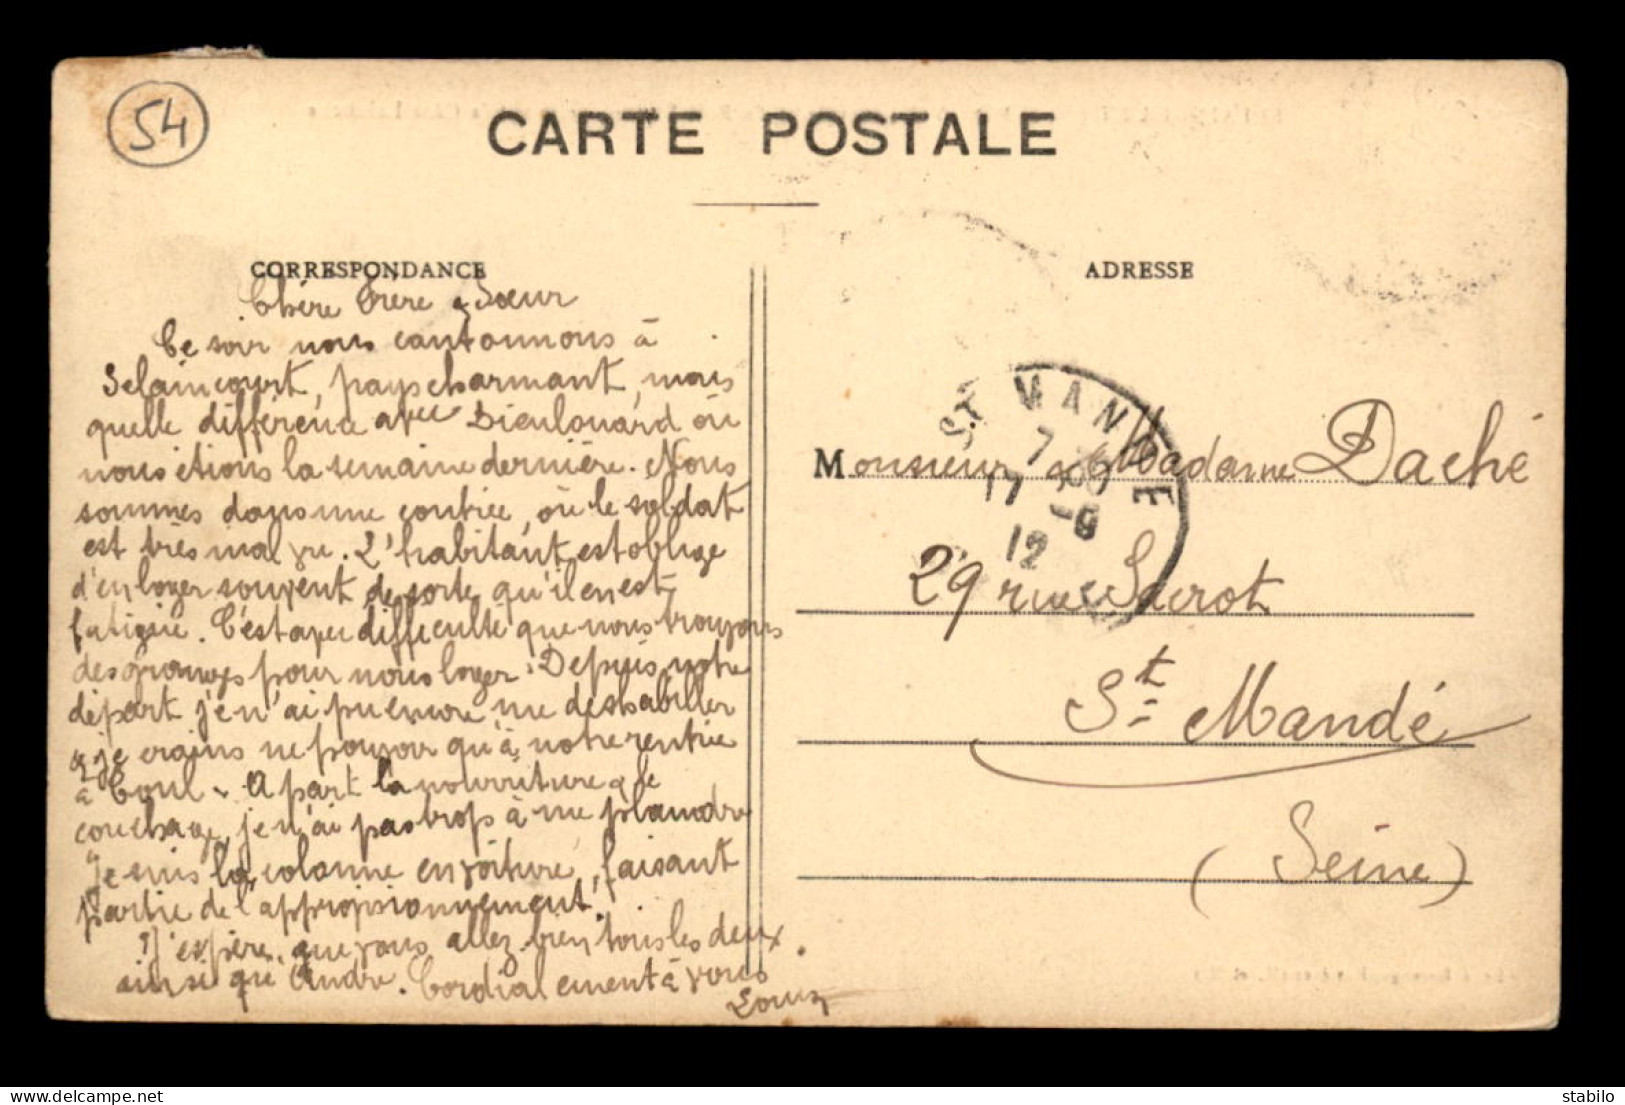 54
CARTE POSTALE
CORRESPONDANCE
ADRESSE
Chère Frère & Sœur
Ce soir nous cantonnons à
Selaincourt, pays charmant, mais
quelle différence avec Dieulouard où
nous étions la semaine dernière. Nous
sommes dans une contrée, où le soldat
est très mal vu. L'habitant est oblige
d'en loger souvent de sorte qu'il en est
fatigué. C'est avec difficulté que nous trouvons
des granges pour nous loger. Depuis notre
départ je n'ai pu encore me deshabiller
& je crains ne pouvoir qu'à notre rentrée
à Toul. A part la nourriture & le
couchage, je n'ai pas trop à me plaindre
Je suis la colonne en voiture, faisant
partie de l'approvisionnement.
J'espère que vous allez bien tous les deux
ainsi qu'André. Cordialement à vous
Louis
ST MANDE
7
17 -6
12
Monsieur Madame Daché
29 rue Sacrot
St Mandé
(Seine)
stabilo